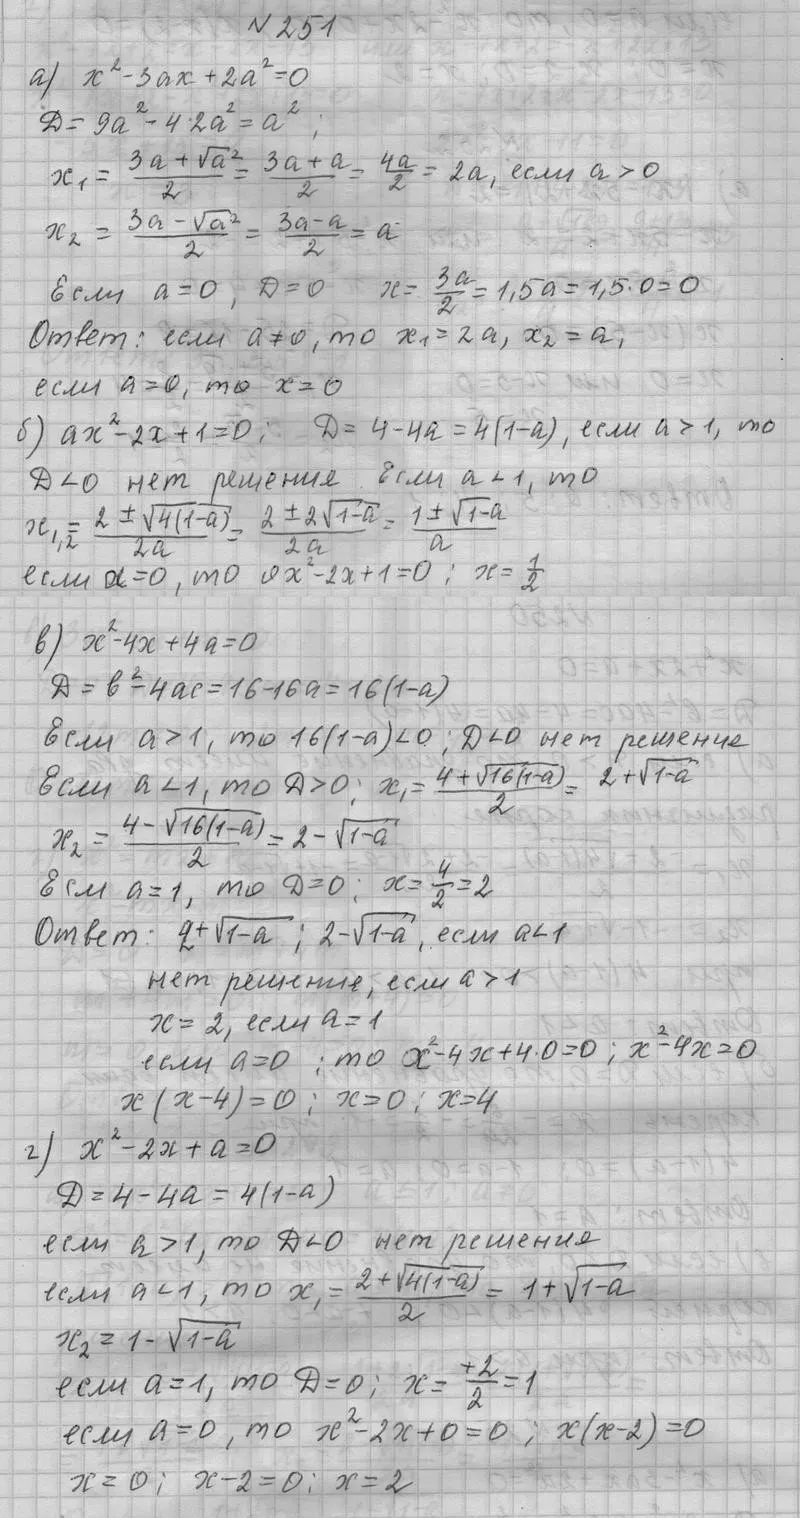 N 251
а) x² - 3ax + 2a² = 0
D = 9a² - 4·2a² = a²;
x₁ = (3a + √a²)/2 = (3a + a)/2 = 4a/2 = 2a, если a > 0
x₂ = (3a - √a²)/2 = (3a - a)/2 = a
Если a = 0, D = 0 x = 3a/2 = 1,5a = 1,5·0 = 0
Ответ: если a ≠ 0, то x₁ = 2a, x₂ = a,
если a = 0, то x = 0
б) ax² - 2x + 1 = 0; D = 4 - 4a = 4(1-a), если a > 1, то
D < 0 нет решения. Если a < 1, то
x₁,₂ = (2 ± √4(1-a))/2a = (2 ± 2√1-a)/2a = (1 ± √1-a)/a
если a = 0, то 0x² - 2x + 1 = 0; x = 1/2
в) x² - 4x + 4a = 0
D = b² - 4ac = 16 - 16a = 16(1-a)
Если a > 1, то 16(1-a) < 0; D < 0 нет решения
Если a < 1, то D > 0; x₁ = (4 + √16(1-a))/2 = 2 + √1-a
x₂ = (4 - √16(1-a))/2 = 2 - √1-a
Если a = 1, то D = 0; x = 4/2 = 2
Ответ: 2 + √1-a; 2 - √1-a, если a < 1
нет решения, если a > 1
x = 2, если a = 1
если a = 0; то x² - 4x + 4·0 = 0; x² - 4x = 0
x(x-4) = 0; x = 0; x = 4
г) x² - 2x + a = 0
D = 4 - 4a = 4(1-a)
если a > 1, то D < 0 нет решения
если a < 1, то x₁ = (2 + √4(1-a))/2 = 1 + √1-a
x₂ = 1 - √1-a
если a = 1, то D = 0; x = +2/2 = 1
если a = 0, то x² - 2x + 0 = 0; x(x-2) = 0
x = 0; x - 2 = 0; x = 2